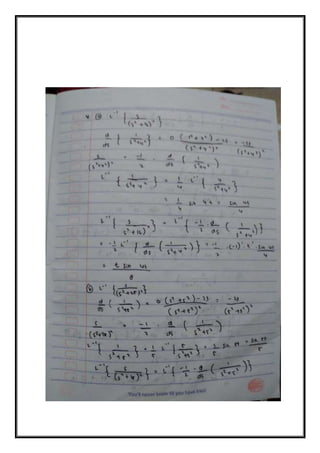 4 (a) L⁻¹ { s / (s² + 4)² }
d/ds { 1 / s²+4² } = 0 (s² + 4²) - 2s / (s² + 4²)² = -2s / (s² + 4²)²
s / (s²+4²)² = -1/2 d/ds ( 1 / s²+4² )
L⁻¹ { 1 / s²+4² } = 1/4 L⁻¹ { 4 / s²+4² }
= 1/4 sin 4t = sin 4t / 4
L⁻¹ { s / (s²+16)² } = L⁻¹ { -1/2 d/ds ( 1 / s²+4² ) }
= -1/2 L⁻¹ { d/ds ( 1 / s²+4² ) } = -1/2 (-1)¹ t¹ sin 4t / 4
= t sin 4t / 8
(b) L⁻¹ { s / (s²+25)² }
d/ds ( 1 / s²+5² ) = 0 (s² + 5²) - 2s / (s² + 5²)² = -2s / (s² + 5²)²
s / (s²+25)² = -1/2 d/ds ( 1 / s²+5² )
L⁻¹ { 1 / s²+5² } = 1/5 L⁻¹ { 5 / s²+5² } = 1/5 sin 5t = sin 5t / 5
= L⁻¹ { -1/2 d/ds ( 1 / s²+5² ) }
You'll never know till you have tried